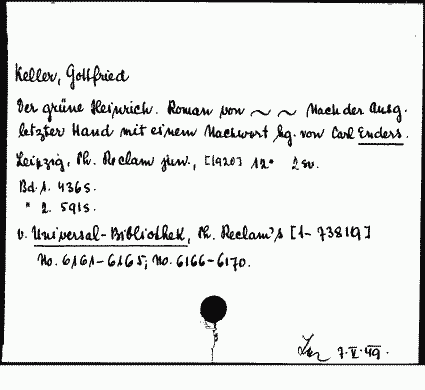 Keller, Gottfried
Der grüne Heinrich. Roman von ~ ~ Nach der Ausg.
letzter Hand mit einem Nachwort hg. von Carl Enders.
Leipzig, Ph. Reclam jun., [1920] 12°
Bd. 1. 436 S.
" 2. 591 S.
v. Universal-Bibliothek, Ph. Reclam's [1-7381q]
No. 6161-6165; No. 6166-6170.
7.V.49.